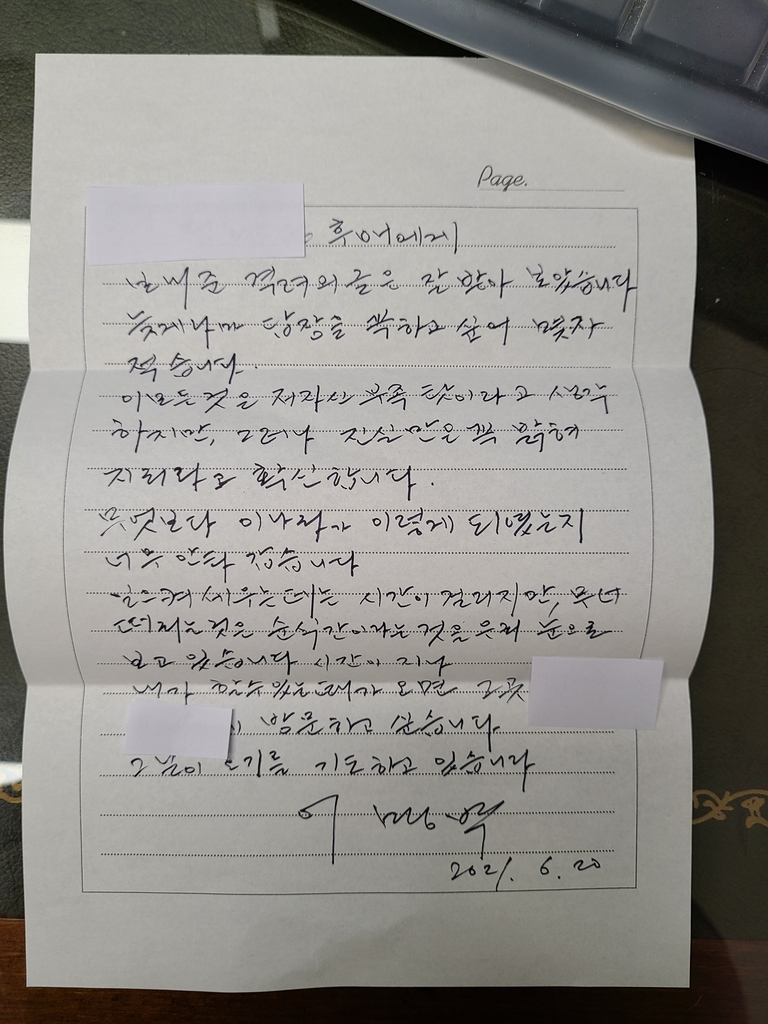 Page.
후배에게
보내준 격려의 글은 잘 받아 보았습니다
늦게나마 답장을 꼭하고 싶어 몇자
적습니다.
이모든것은 저자신 부족 탓이라고 생각
하지만, 그러나 진실만은 꼭 밝혀
지리라고 확신합니다.
무엇보다 이나라가 이렇게 되였는지
너무 안타 깝습니다
일으켜 세우는데는 시간이 걸리지만, 무너
떠리는것은 순식간이라는 것을 우리 눈으로
보고 있습니다 시간이 지나
내가 할수있는때가 오면 그곳
방문하고 싶습니다
그날이 오기를 기도하고 있습니다
이 명박
2021. 6. 20